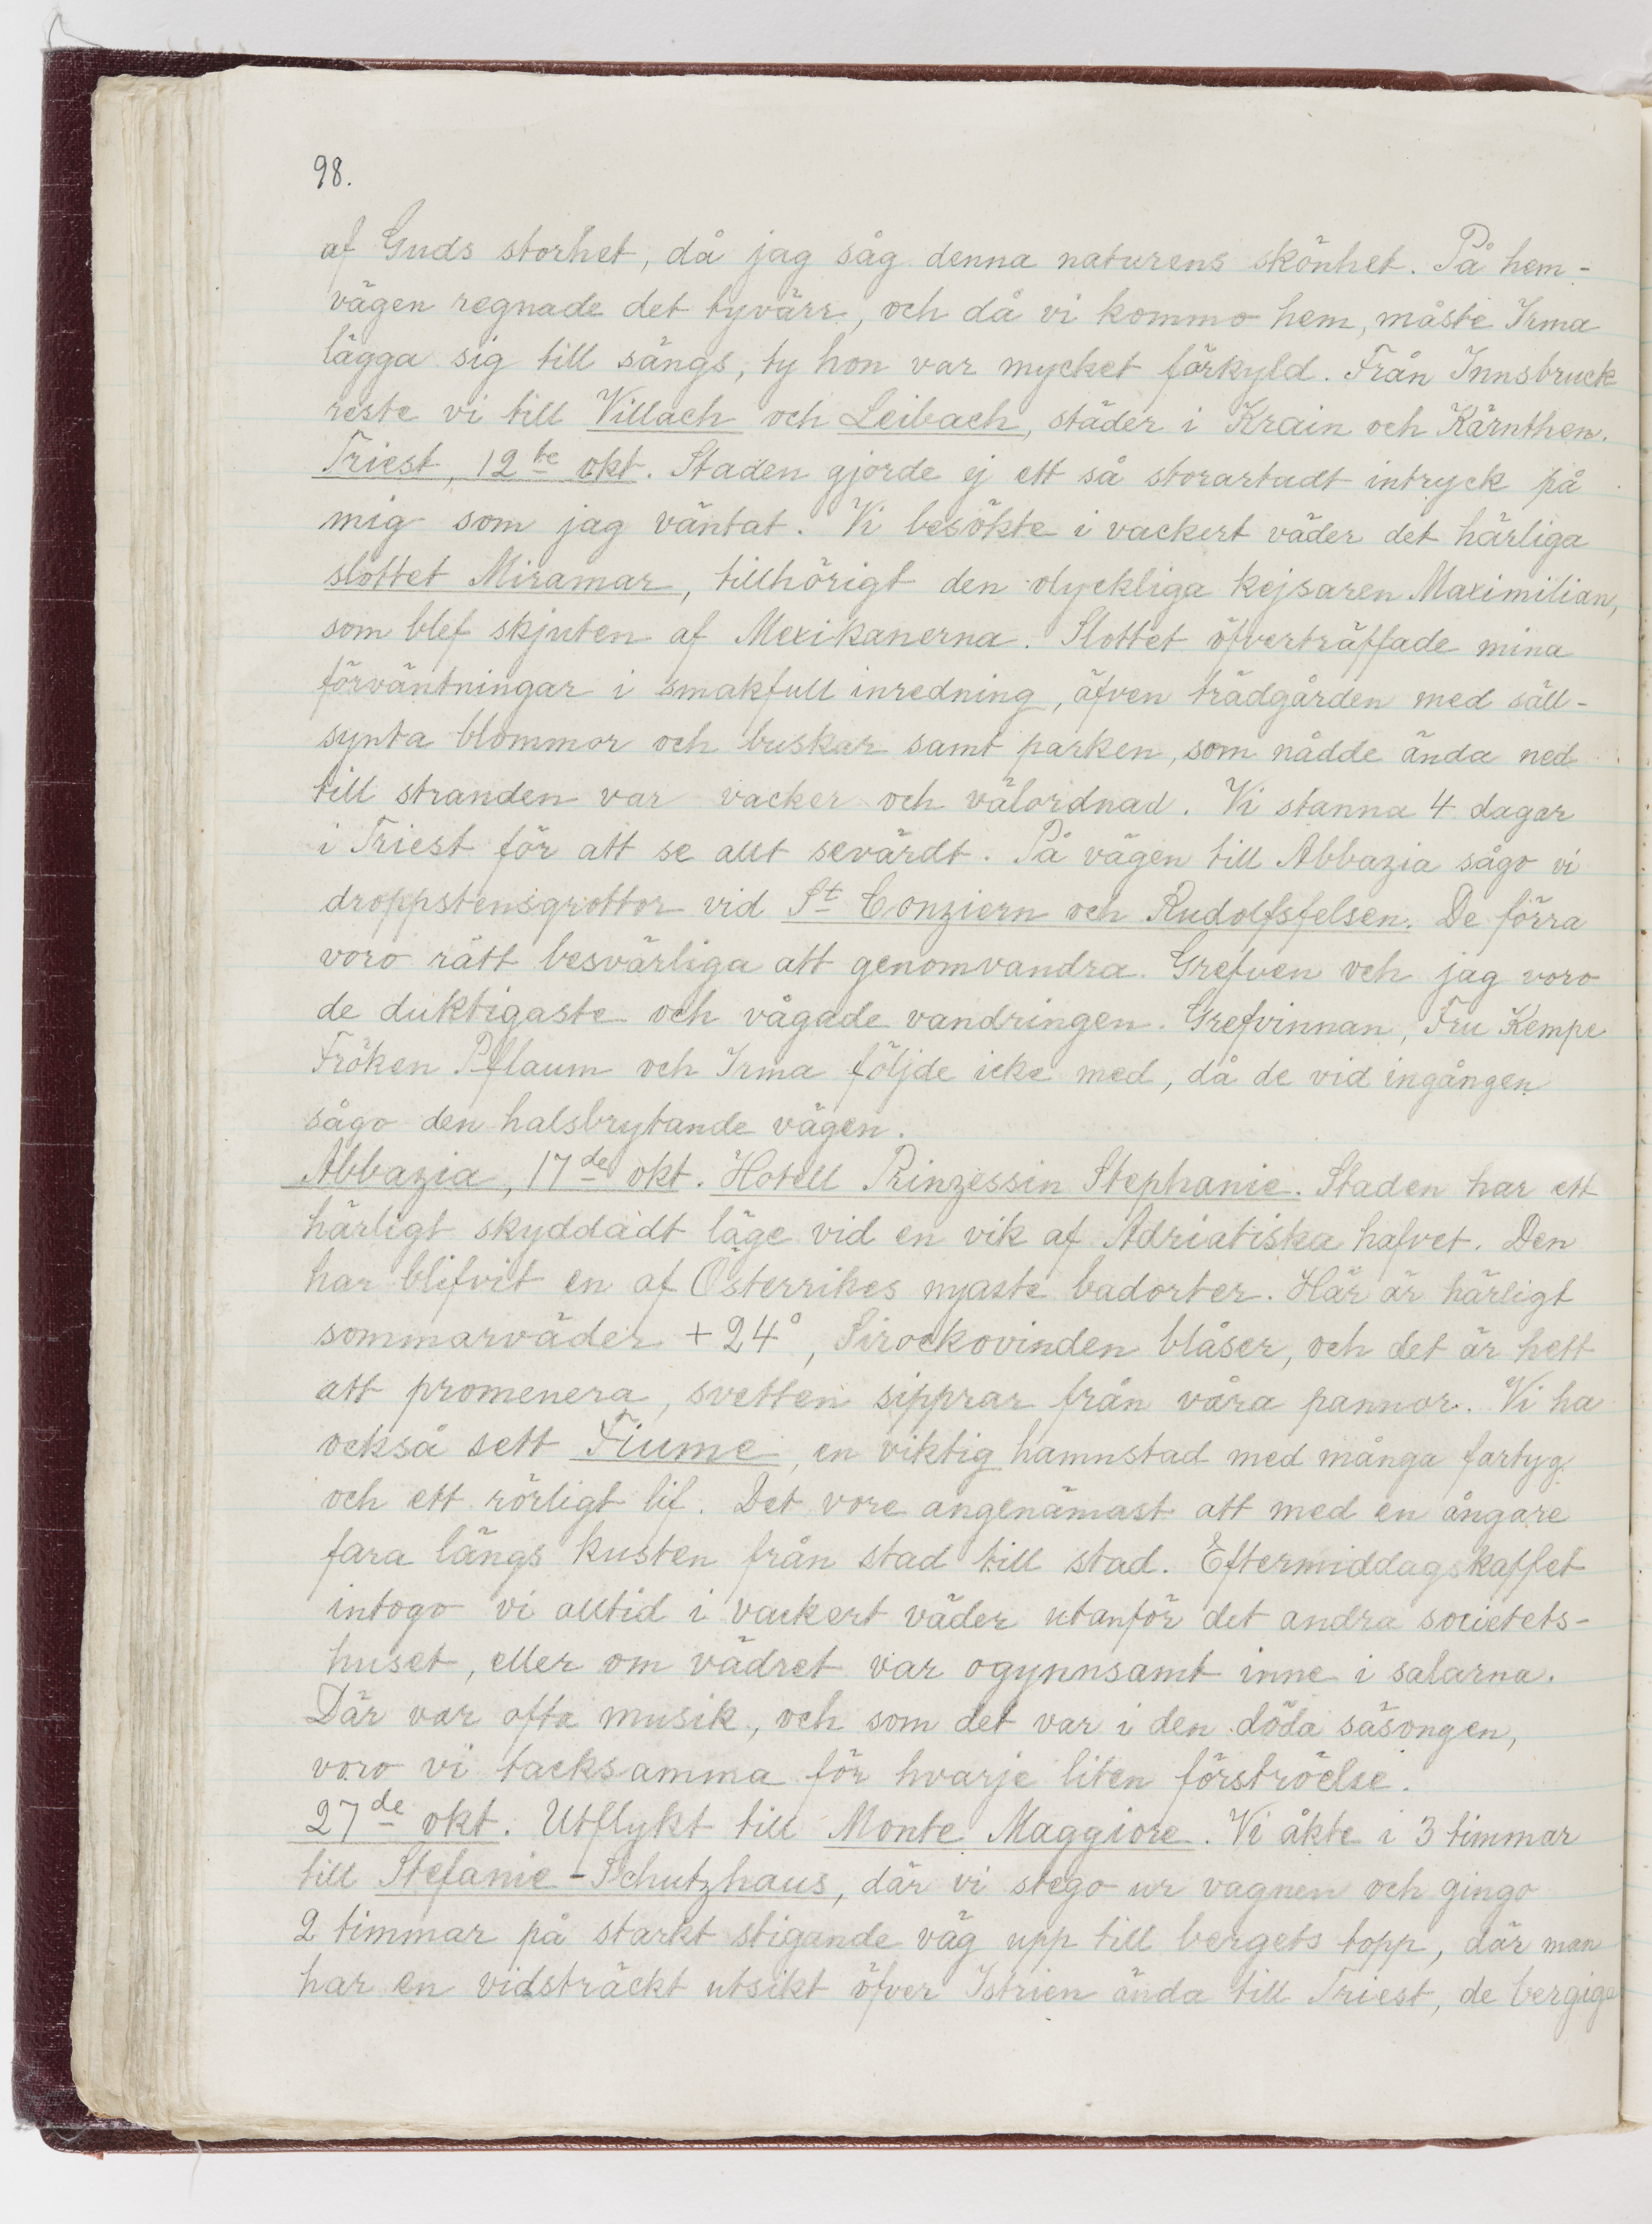 98.
af Guds storhet, då jag såg denna naturens skönhet. På hem-
vägen regnade det tyvärr, och då vi kommo hem, måste Irma
lägga sig till sängs, ty hon var mycket förkyld. Från Innsbruck
reste vi till Villach och Leibach, städer i Krain och Kärnthen.
Triest, 12te okt. Staden gjorde ej ett så storartadt intryck på
mig som jag väntat. Vi besökte i vackert väder det härliga
slottet Miramar, tillhörigt den olyckliga kejsaren Maximilian,
som blef skjuten af Mexikanerna. Slottet öfverträffade mina
förväntningar i smakfull inredning, äfven trädgården med säll-
synta blommor och buskar samt parken, som nådde ända ned
till stranden var vacker och välordnad. Vi stanna 4 dagar
i Triest för att se allt sevärdt. På vägen till Abbazia sågo vi
droppstensgrottor vid St Conziern och Rudolfsfelsen. De förra
voro rätt besvärliga att genomvandra. Grefven och jag voro
de duktigaste och vågade vandringen. Grefvinnan, Fru Kempe
Fröken Pflaum och Irma följde icke med, då de vid ingången
sågo den halsbrytande vägen.
Abbazia, 17de okt. Hotell Prinzessin Stephanie. Staden har ett
härligt skyddadt läge vid en vik af Adriatiska hafvet. Den
har blifvit en af Österrikes nyaste badorter. Här är härligt
sommarväder +24°, Sirockovinden blåser, och det är hett
att promenera, svetten sipprar från våra pannor. Vi ha
också sett Fiume, en viktig hamnstad med många fartyg
och ett rörligt lif. Det vore angenämast att med en ångare
fara längs kusten från stad till stad. Eftermiddagskaffet
intogo vi alltid i vackert väder utanför det andra societets-
huset, eller om vädret var ogynnsamt inne i salarna.
Där var ofta musik, och som det var i den döda säsongen,
voro vi tacksamma för hvarje liten förströelse.
27de okt. Utflykt till Monte Maggiore. Vi åkte i 3 timmar
till Stefanie-Schutzhaus, där vi stego ur vagnen och gingo
2 timmar på starkt stigande väg upp till bergets topp, där man
har en vidsträckt utsikt öfver Istrien ända till Triest, de bergiga